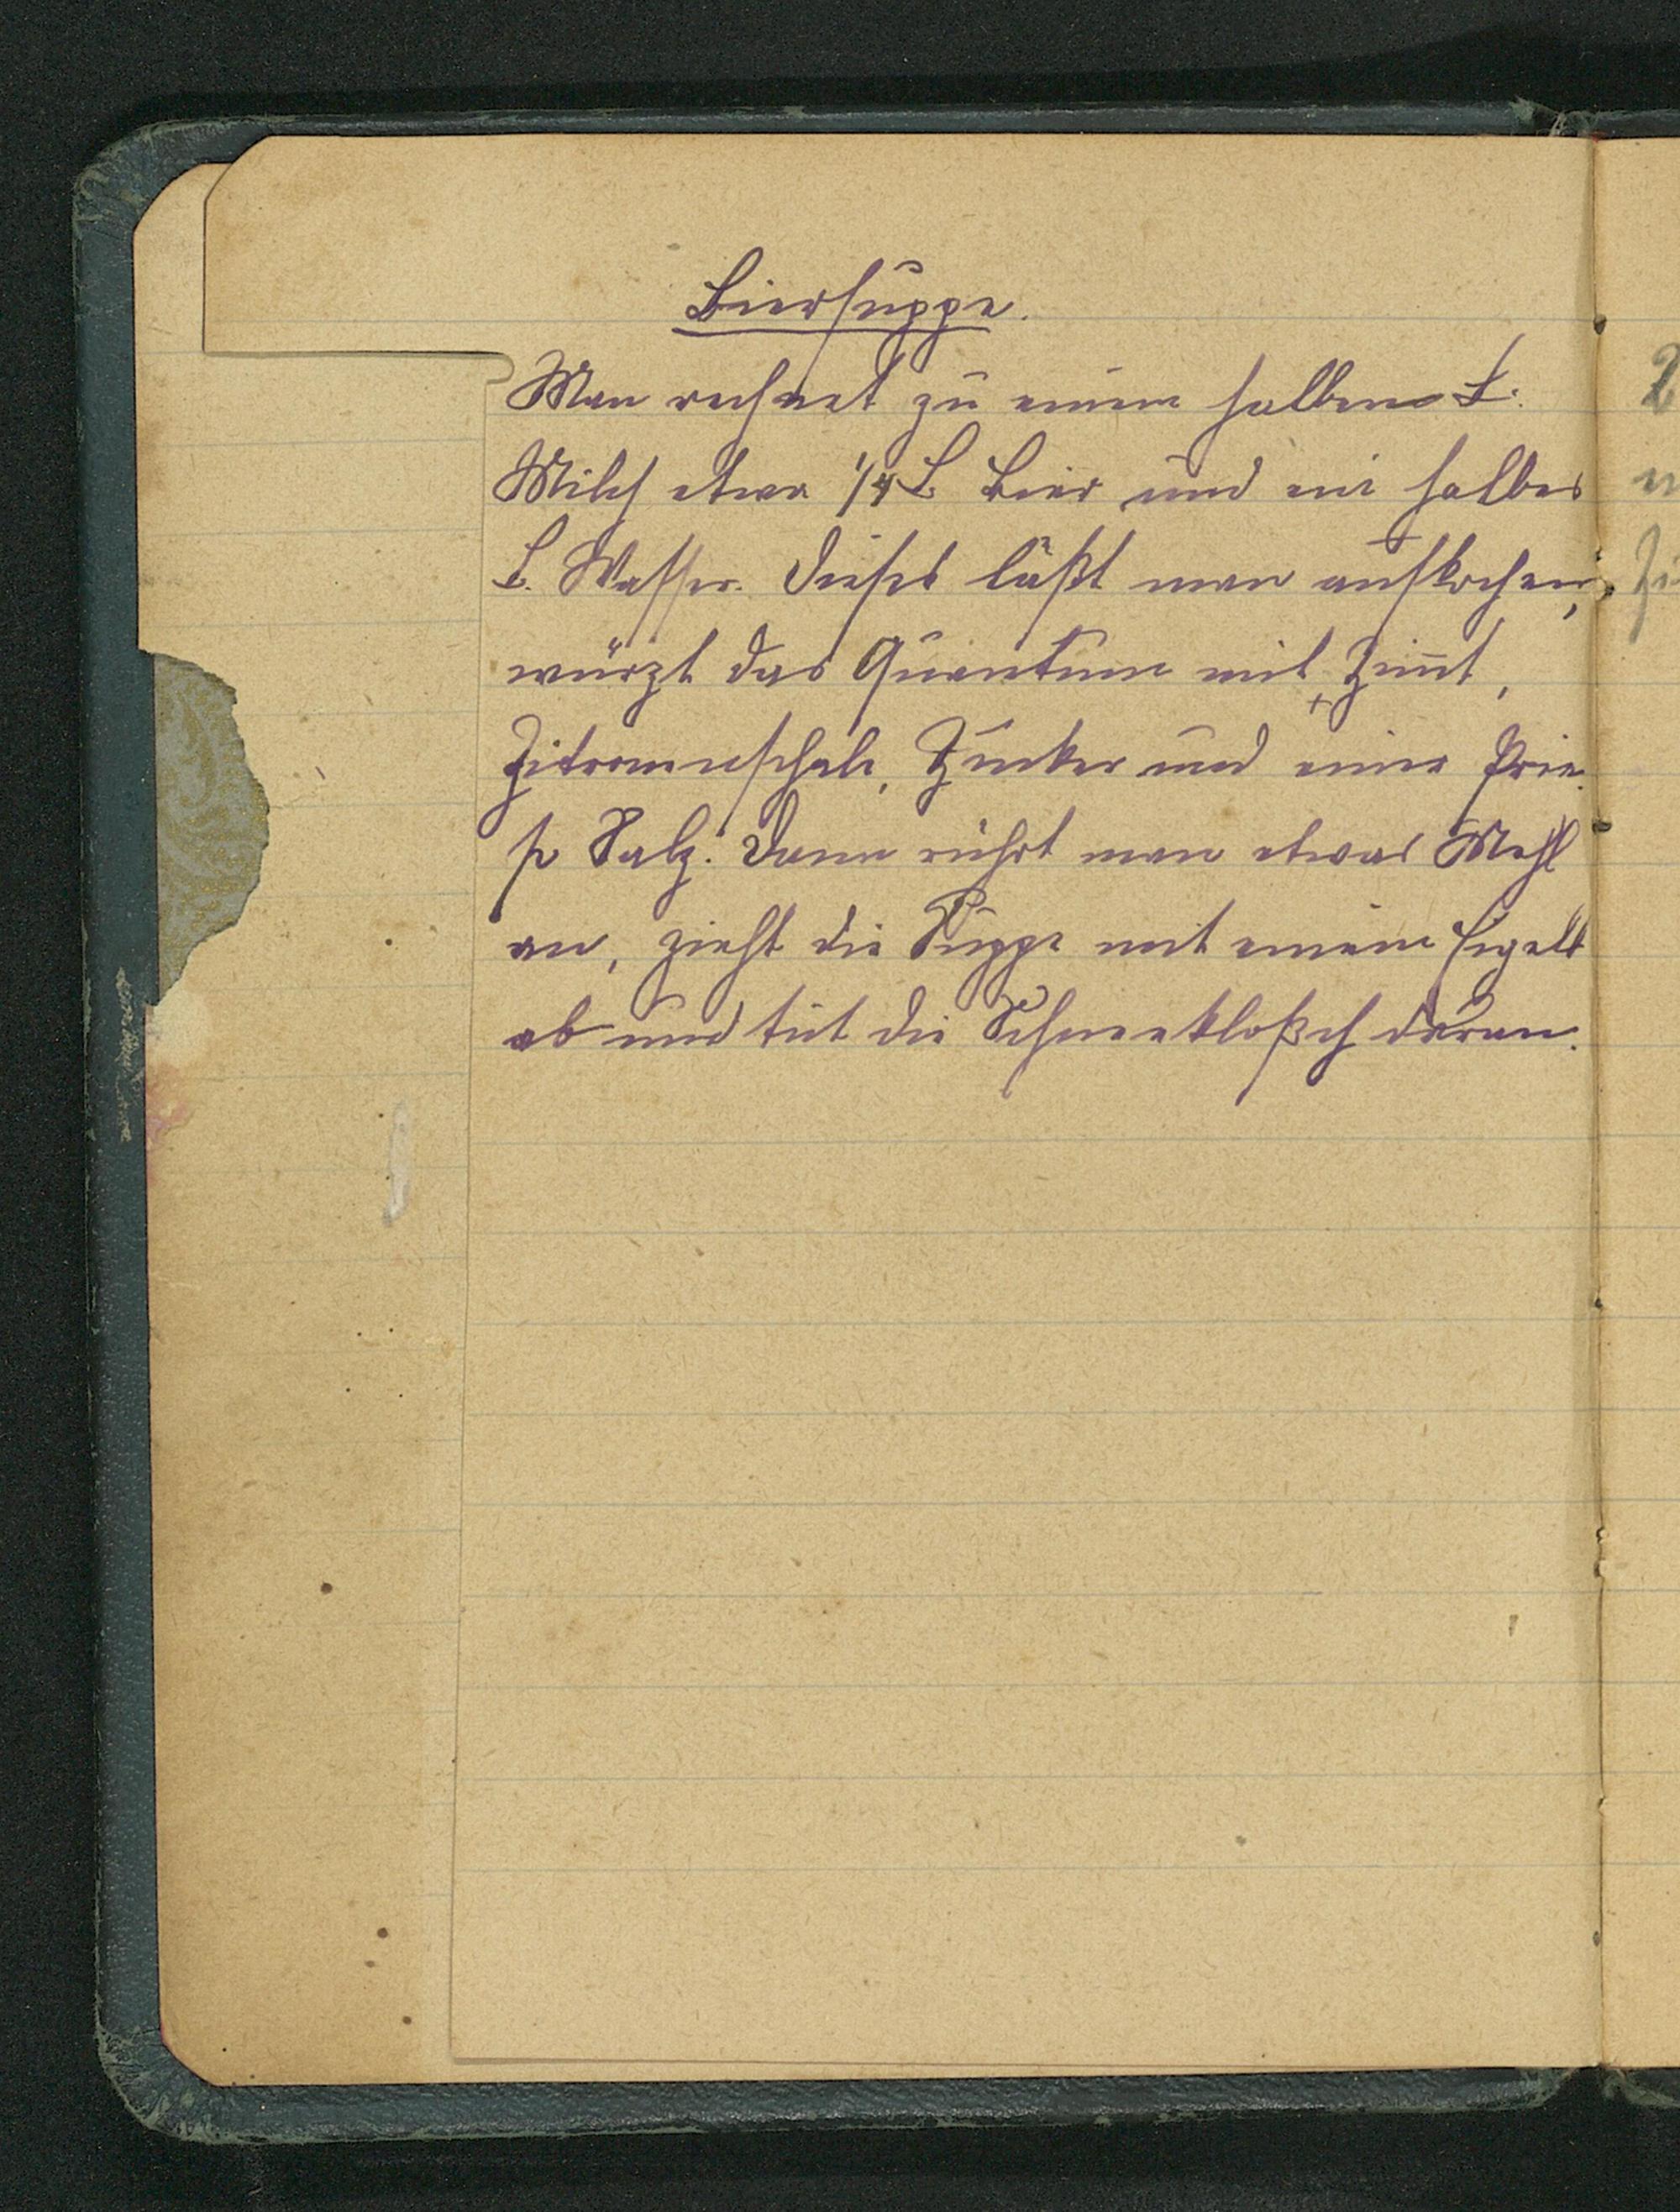 Biersuppe.
Man rechnet zu einem halben L.
Milch etwa 1/4 L. Bier und ein halbes
L. Wasser. Dieses läßt man aufkochen,
würzt das Quantum mit Zimt,
Zitronenschale, Zucker und einer Prie-
se Salz. Dann rührt man etwas Mehl
an, zieht die Suppe mit einem Eigelb
ab und tut die daran.